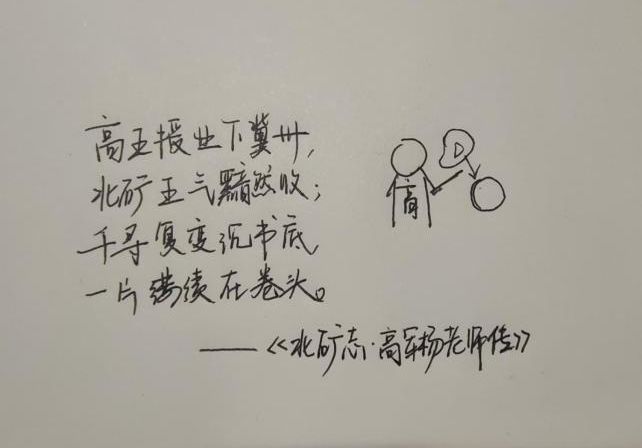 高王授业下冀州,
北矿王气黯然收;
千寻复变沉书底,
一片满绩在卷头。
——《北矿志·高军杨老师传》
高